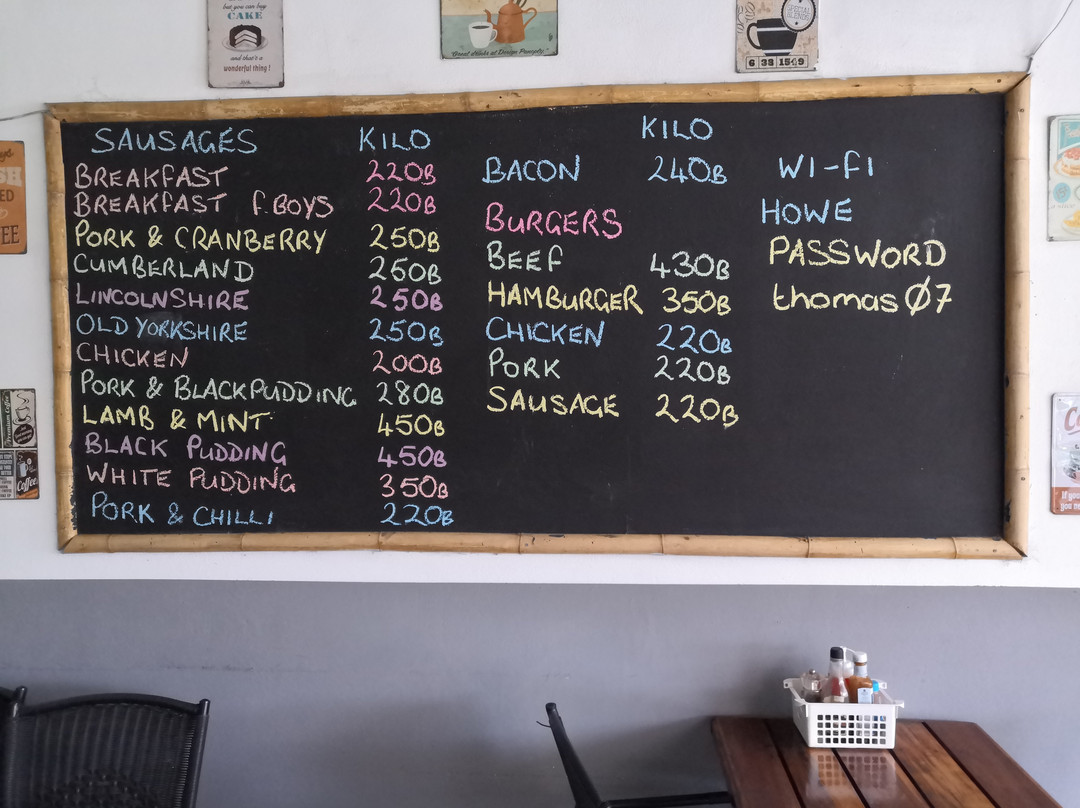 but you can buy
CAKE
and that's a
wonderful thing!
SPECIAL
BLEND
6 38 1549
SAUSAGES KILO
BREAKFAST 220B
BREAKFAST F.BOYS 220B
PORK & CRANBERRY 250B
CUMBERLAND 250B
LINCOLNSHIRE 250B
OLD YORKSHIRE 250B
CHICKEN 200B
PORK & BLACKPUDDING 280B
LAMB & MINT 450B
BLACK PUDDING 450B
WHITE PUDDING 350B
PORK & CHILLI 220B
KILO
BACON 240B
BURGERS
BEEF 430B
HAMBURGER 350B
CHICKEN 220B
PORK 220B
SAUSAGE 220B
WI-FI
HOWE
PASSWORD
thomasØ7
Premium Coffee
Coffee
If you
you ne